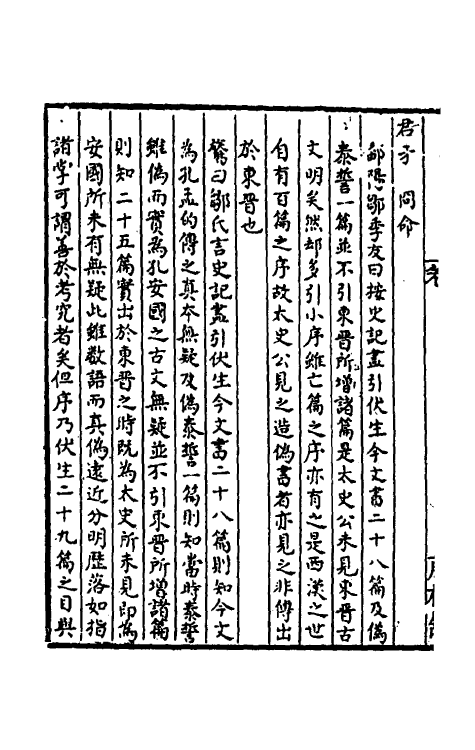 君牙　冏命
鄱陽鄒季友曰按史記盡引伏生今文書二十八篇及偽
泰誓一篇並不引東晉所增諸篇是太史公未見東晉古
文明矣然却多引小序雖亡篇之序亦有之是西漢之世
自有百篇之序故太史公見之造偽書者亦見之非傳出
於東晉也
鷟曰鄒氏言史記盡引伏生今文書二十八篇則知今文
為孔孟的傳之真本無疑及偽泰誓一篇則知當時泰誓
雖偽而實為孔安國之古文無疑並不引東晉所增諸篇
則知二十五篇實出於東晉之時既為太史所未見即為
安國所未有無疑此雖數語而真偽遠近分明歷落如指
諸掌可謂善於考究者矣但序乃伏生二十九篇之目與